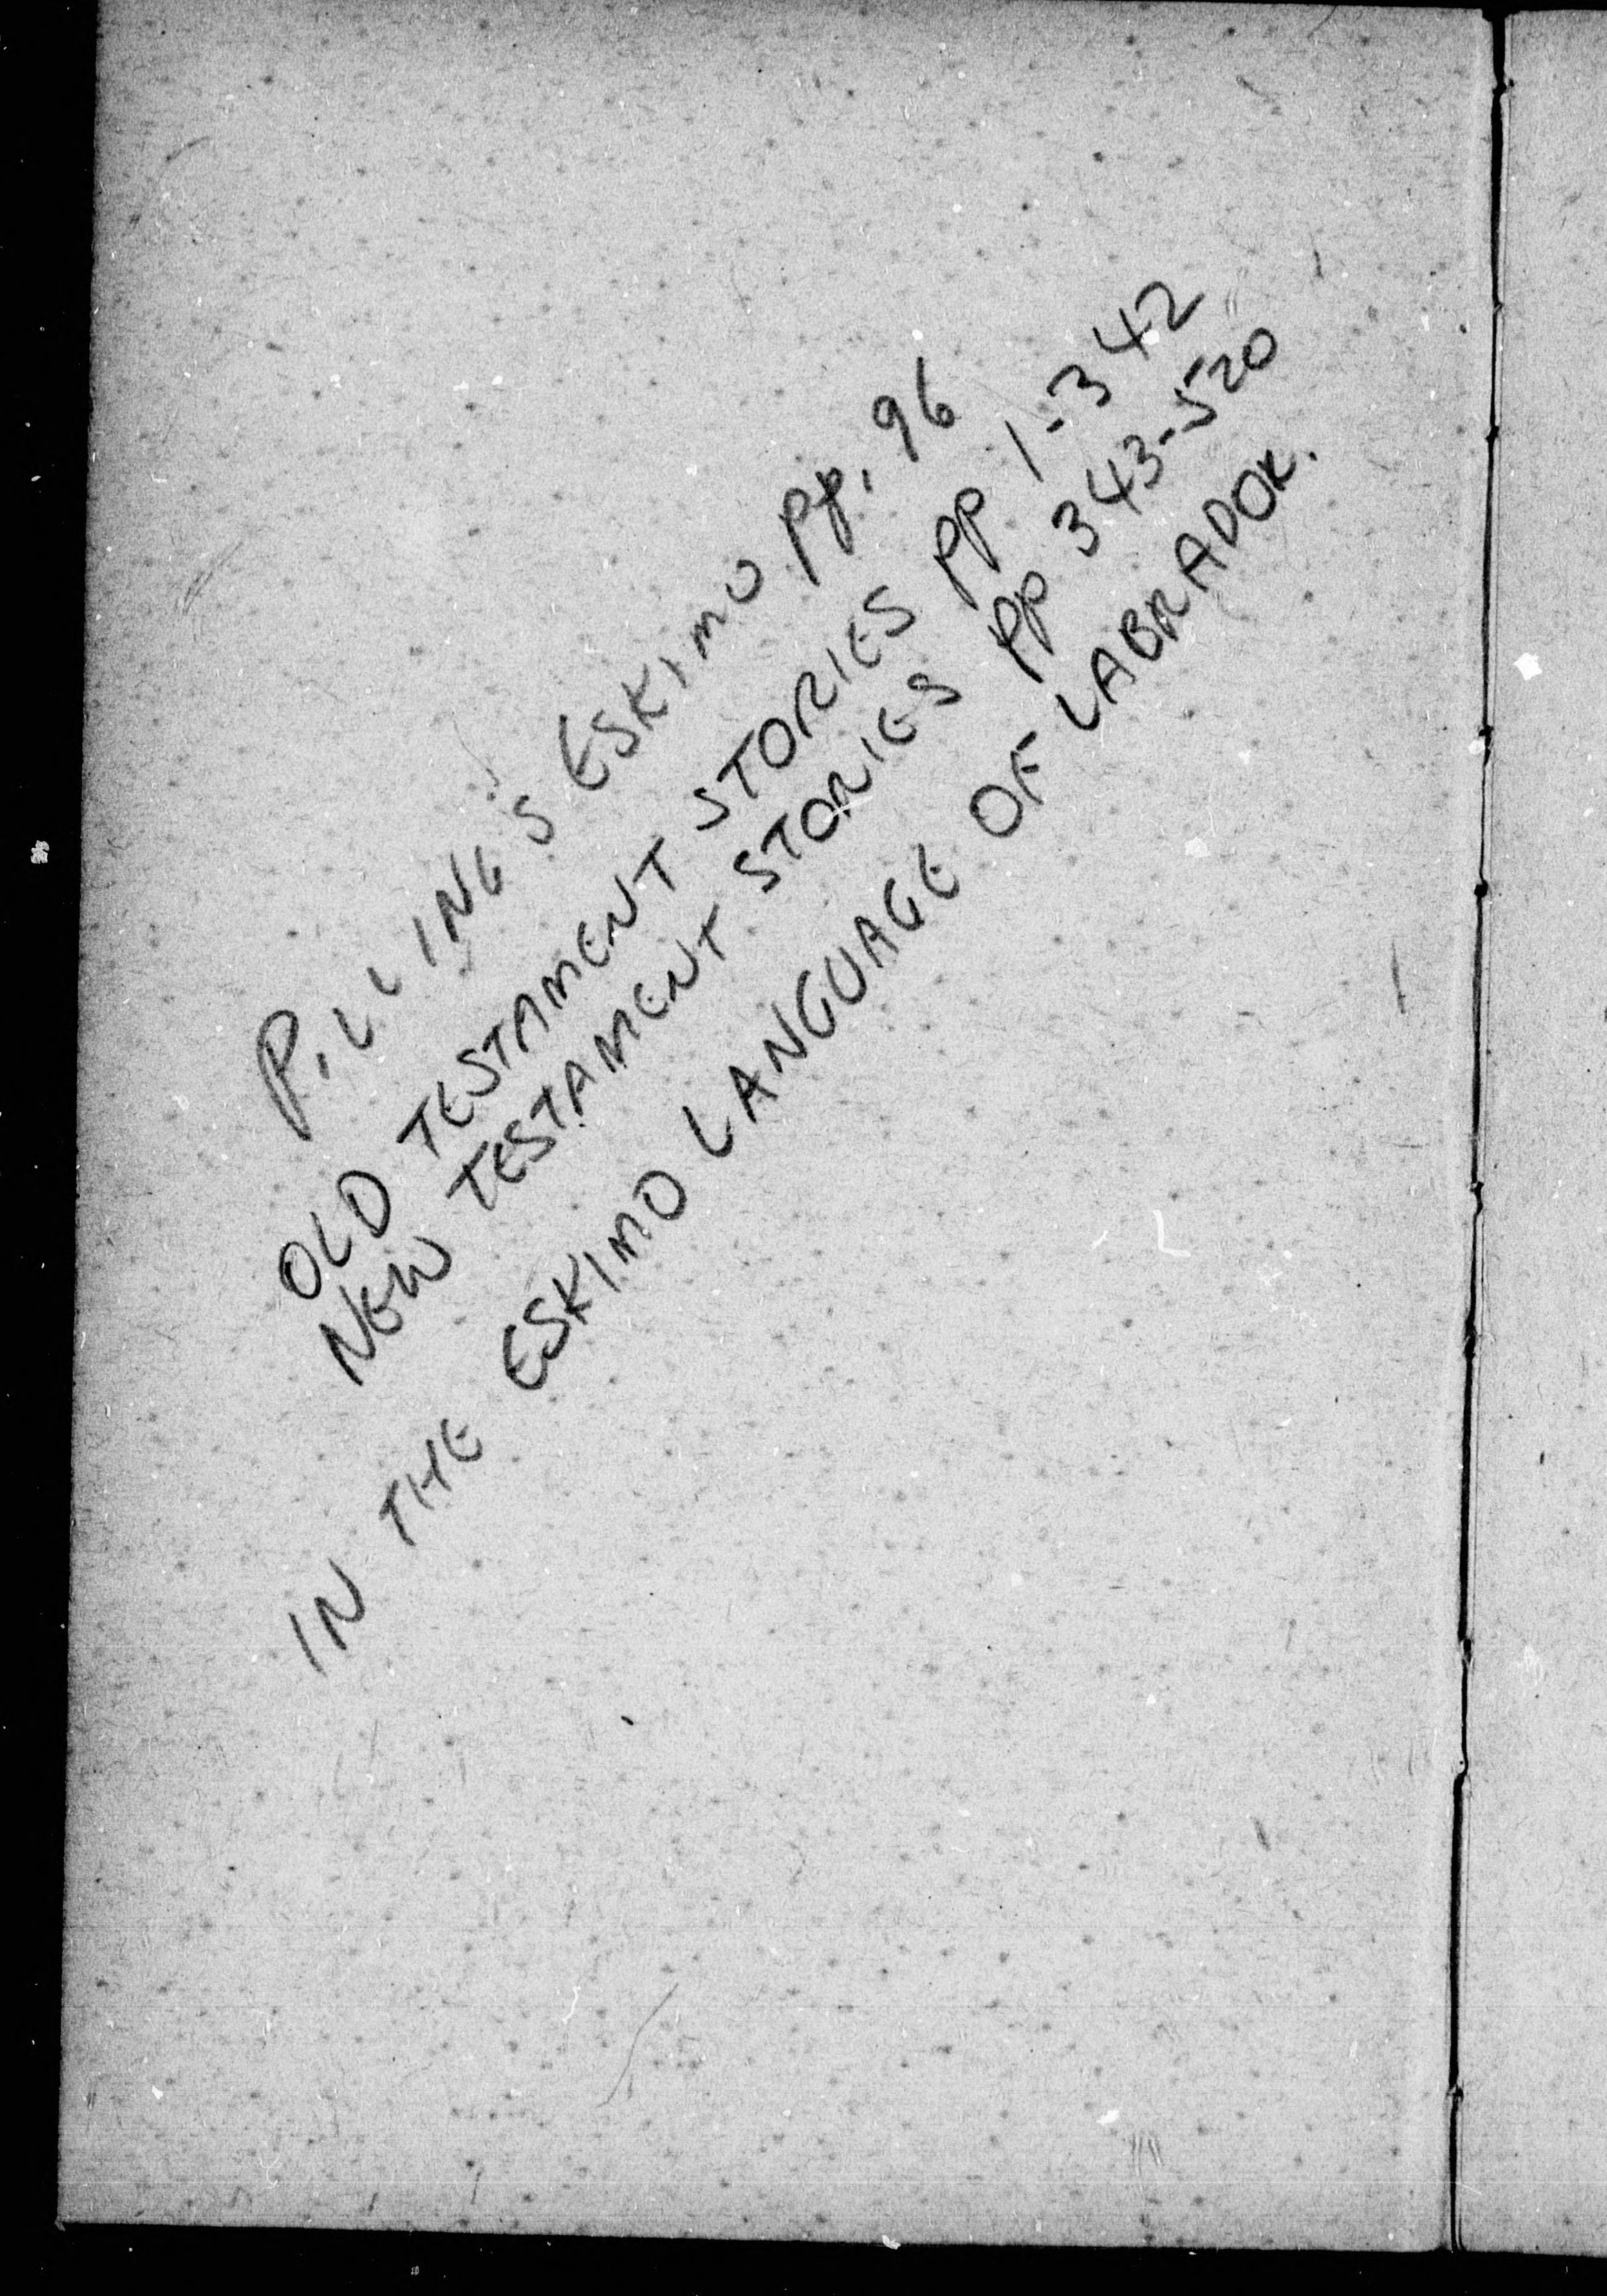 PILLING'S ESKIMO pp. 96
OLD TESTAMENT STORIES pp 1-342
NEW TESTAMENT STORIES pp 343-520
IN THE ESKIMO LANGUAGE OF LABRADOR.